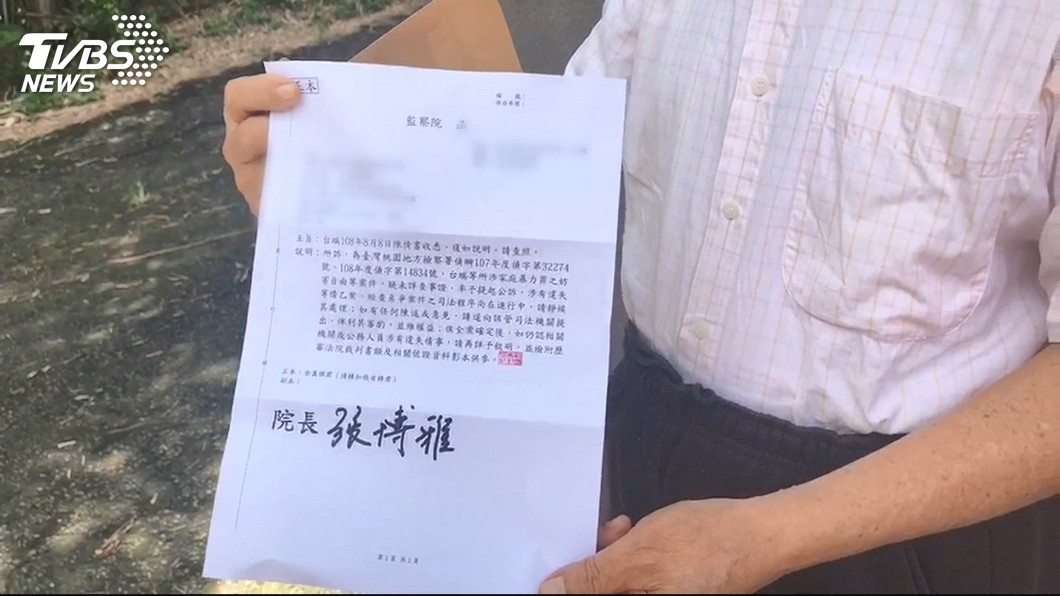 TVBS
NEWS
正本
檔　號：
保存年限：
監察院　函
主旨：台端108年8月8日陳情書收悉，復如說明，請查照。
說明：所訴，為臺灣桃園地方檢察署偵辦107年度偵字第32274
號、108年度偵字第14834號，台端等所涉家庭暴力罪之妨
害自由等案件，疑未詳查事證，率予提起公訴，涉有違失
等情乙案，經查系爭案件之司法程序尚在進行中，請靜候
其處理；如有任何陳述或意見，請逕向該管司法機關提
出，俾利其審酌，並維權益；俟全案確定後，如仍認相關
機關或公務人員涉有違失情事，請再詳予敘明，並檢附歷
審法院裁判書類及相關佐證資料影本供參。
正本：
副本：
院長 張博雅
第1頁 共1頁